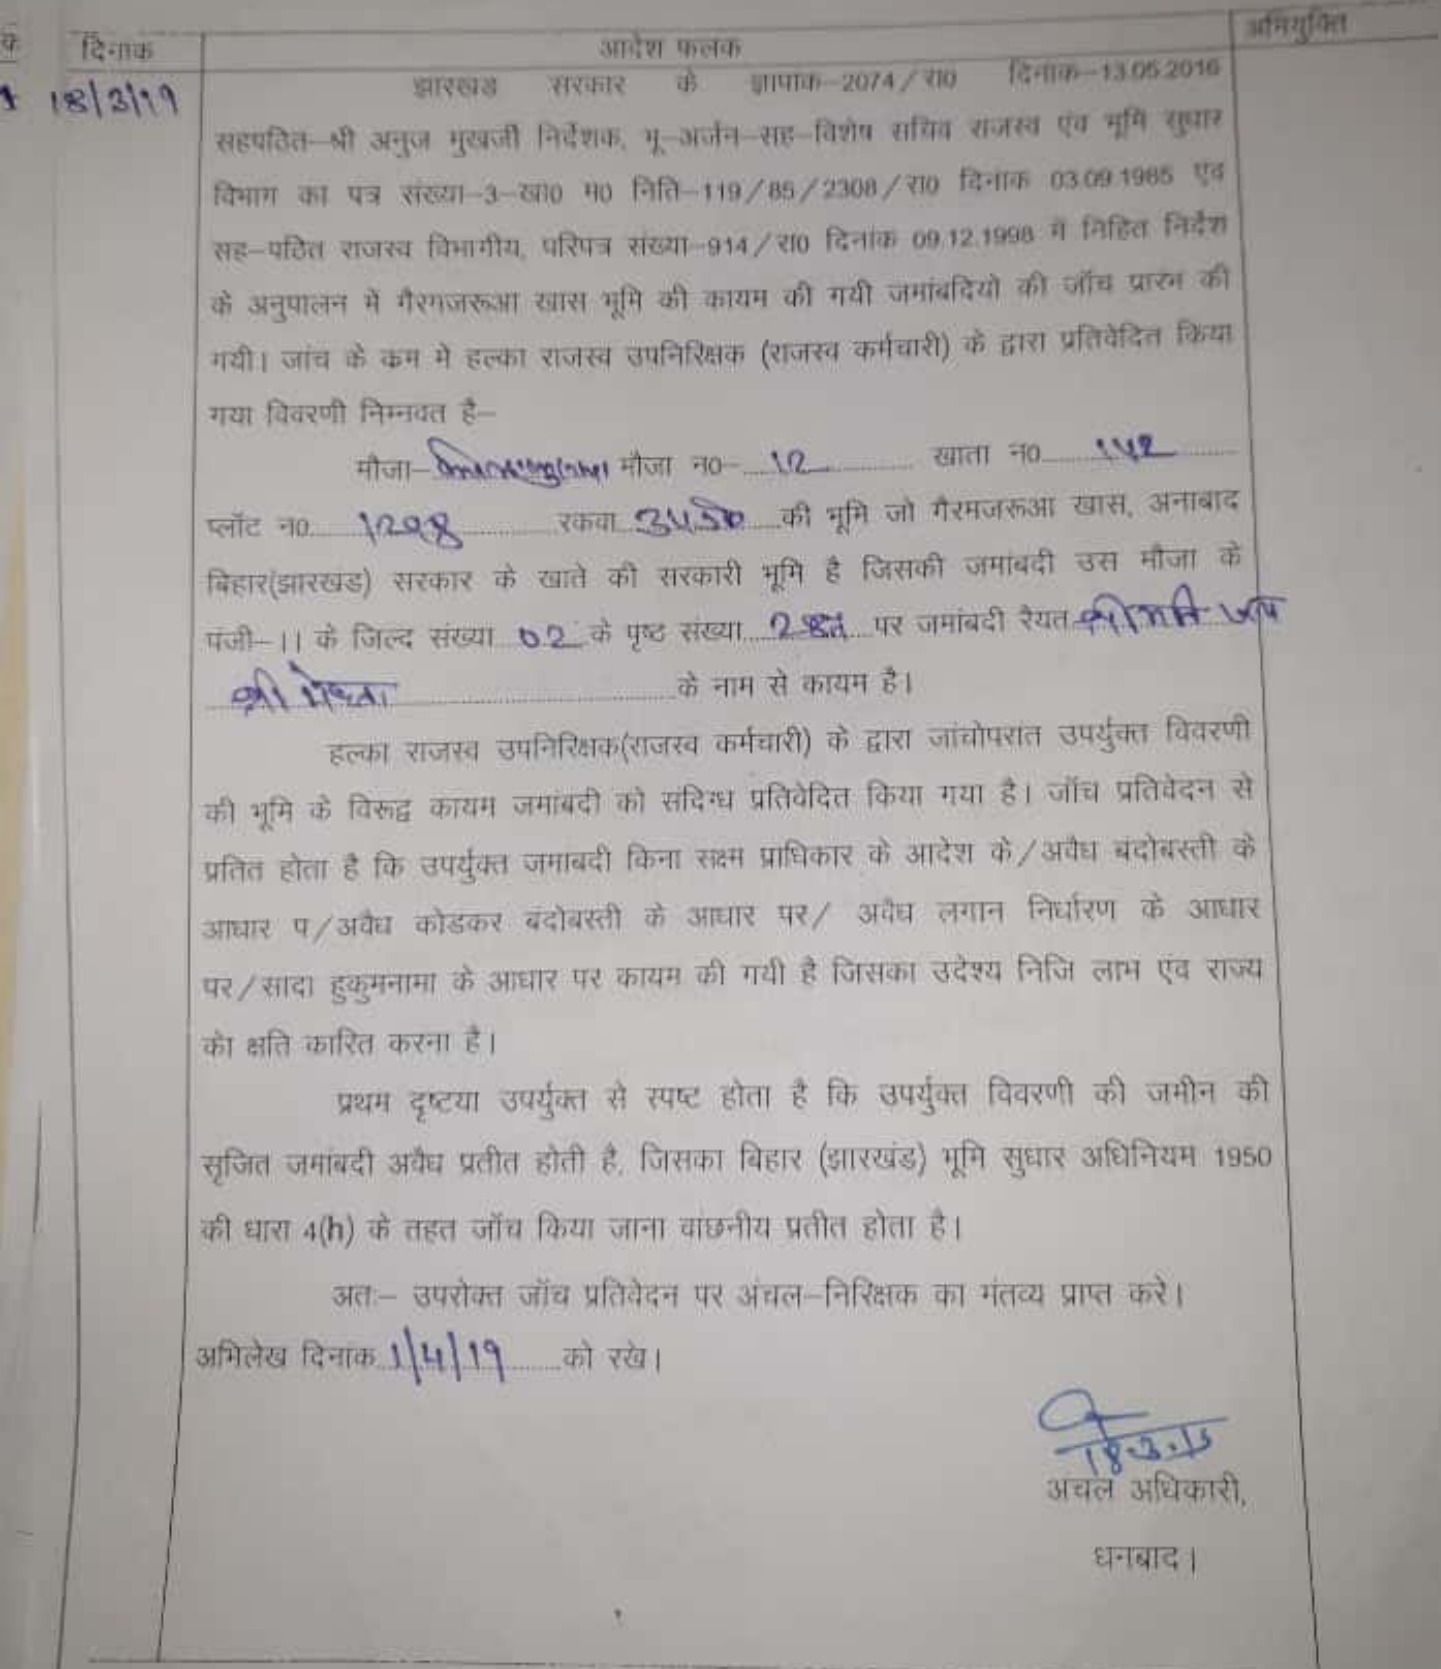 दिनांक
आदेश फलक
अभियुक्ति
1 18/3/19
झारखंड सरकार के ज्ञापांक-2074/रा0 दिनांक-13.05.2016
सहपठित-श्री अनुज मुखर्जी निर्देशक, भू-अर्जन-सह-विशेष सचिव राजस्व एंव भूमि सुधार
विभाग का पत्र संख्या-3-खा0 म0 निति-119/85/2308/रा0 दिनांक 03.09.1985 एंव
सह-पठित राजस्व विभागीय, परिपत्र संख्या-914/रा0 दिनांक 09.12.1998 में निहित निर्देश
के अनुपालन में गैरमजरूआ खास भूमि की कायम की गयी जमांबदियो की जॉच प्रारंभ की
गयी। जांच के कम मे हल्का राजस्व उपनिरिक्षक (राजस्व कर्मचारी) के द्वारा प्रतिवेदित किया
गया विवरणी निम्नवत है-
मौजा- मौजा न0- 12 खाता न0 142
प्लॉट न0 1298 रकवा की भूमि जो गैरमजरूआ खास, अनाबाद
बिहार(झारखंड) सरकार के खाते की सरकारी भूमि है जिसकी जमांबदी उस मौजा के
पंजी-11 के जिल्द संख्या 02 के पृष्ट संख्या पर जमांबदी रैयत श्रीमति
के नाम से कायम है।
हल्का राजस्व उपनिरिक्षक(राजस्व कर्मचारी) के द्वारा जांचोपरांत उपर्युक्त विवरणी
की भूमि के विरूद्व कायम जमांबदी को संदिग्ध प्रतिवेदित किया गया है। जॉच प्रतिवेदन से
प्रतित होता है कि उपर्युक्त जमाबदी किना सक्ष्म प्राधिकार के आदेश के/अवैध बंदोबस्ती के
आधार प/अवैध कोडकर बंदोबस्ती के आधार पर/ अवैध लगान निर्धारण के आधार
पर/सादा हुकुमनामा के आधार पर कायम की गयी है जिसका उदेश्य निजि लाभ एंव राज्य
को क्षति कारित करना है।
प्रथम दृष्टया उपर्युक्त से स्पष्ट होता है कि उपर्युक्त विवरणी की जमीन की
सृजित जमांबदी अवैध प्रतीत होती है, जिसका बिहार (झारखंड) भूमि सुधार अधिनियम 1950
की धारा 4(h) के तहत जॉच किया जाना वांछनीय प्रतीत होता है।
अतः- उपरोक्त जॉच प्रतिवेदन पर अंचल-निरिक्षक का मंतव्य प्राप्त करे।
अभिलेख दिनांक 1/4/19 को रखे।
अंचल अधिकारी,
धनबाद।